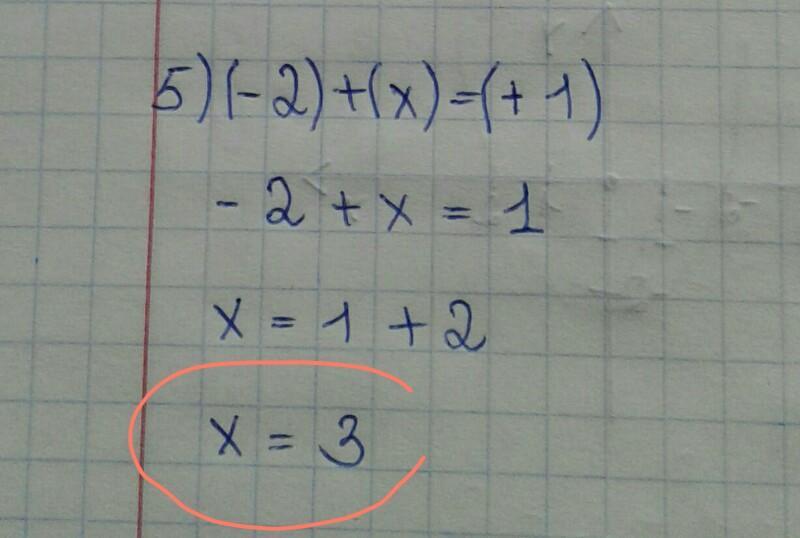 5) (- 2) + (x) = (+ 1)
- 2 + x = 1
x = 1 + 2
x = 3